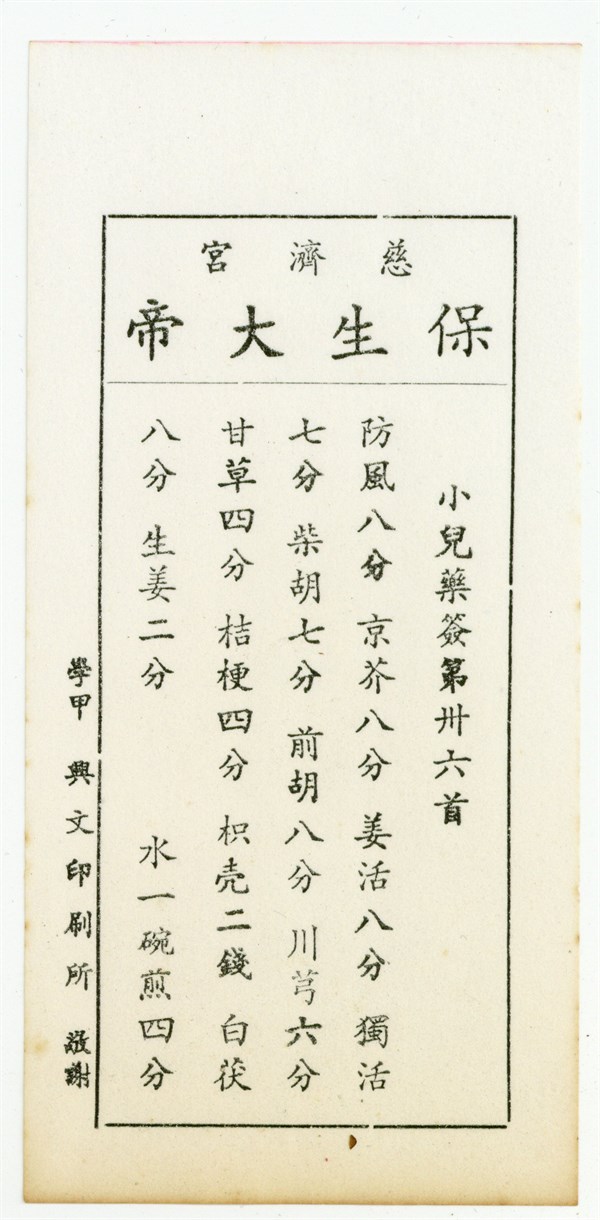 慈濟宮
保生大帝
小兒藥簽第卅六首
防風八分 京芥八分 姜活八分 獨活
七分 柴胡七分 前胡八分 川芎六分
甘草四分 桔梗四分 枳壳二錢 白茯
八分 生姜二分 水一碗煎四分
學甲 興文印刷所 敬謝